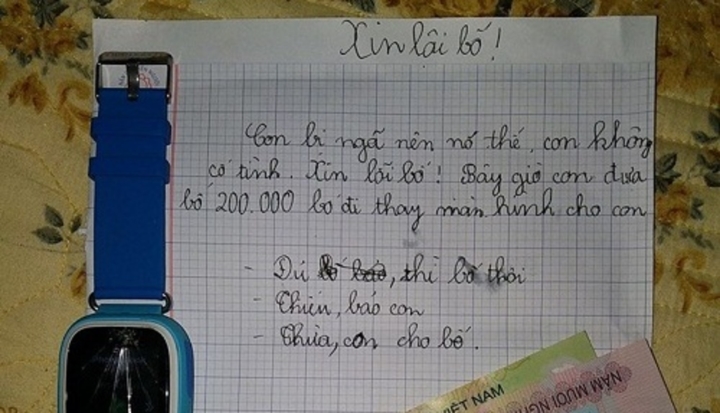 Xin lỗi bố!
Con bị ngã nên nó thế, con không
cố tình. Xin lỗi bố! Bây giờ con đưa
bố 200.000 bố đi thay màn hình cho con
- Đủ thì bố thôi
- Thiếu, bảo con
- Thừa, con cho bố.
VIỆT NAM
NĂM MƯƠI NG